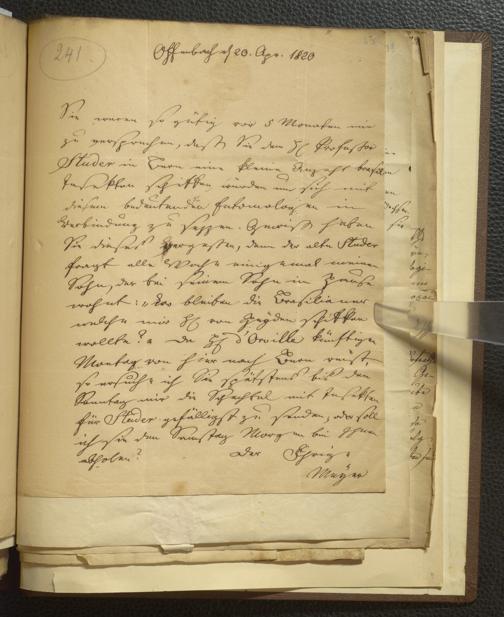 241.
Offenbach d 20. Apr. 1820
Sie waren so gütig vor 5 Monaten mir
zu versprechen, daß Sie dem H Professor
Studer in Bern eine kleine Anzahl brasilien
Insekten schikken würden um sich mit
diesem bedeutenden Entomologen in
Verbindung zu setzen. Gewiß haben
Sie dieses vergessen, denn der alte Studer
fragt alle Woche einigemal meinen
Sohn, der bei seinem Sohn im Hause
wohnt: „wo bleiben die Brasilianer
welche mir H von Heyden schikken
wollte?" Da H d'Orville künftigen
Montag von hier nach Bern reist,
so ersuche ich Sie spätstens bis den
Sonntag mir die Schachtel mit Insekten
für Studer gefälligst zu senden, oder soll
ich sie den Samstag Morgen bei Ihnen
abholen?
Der Ihrige
Meyer